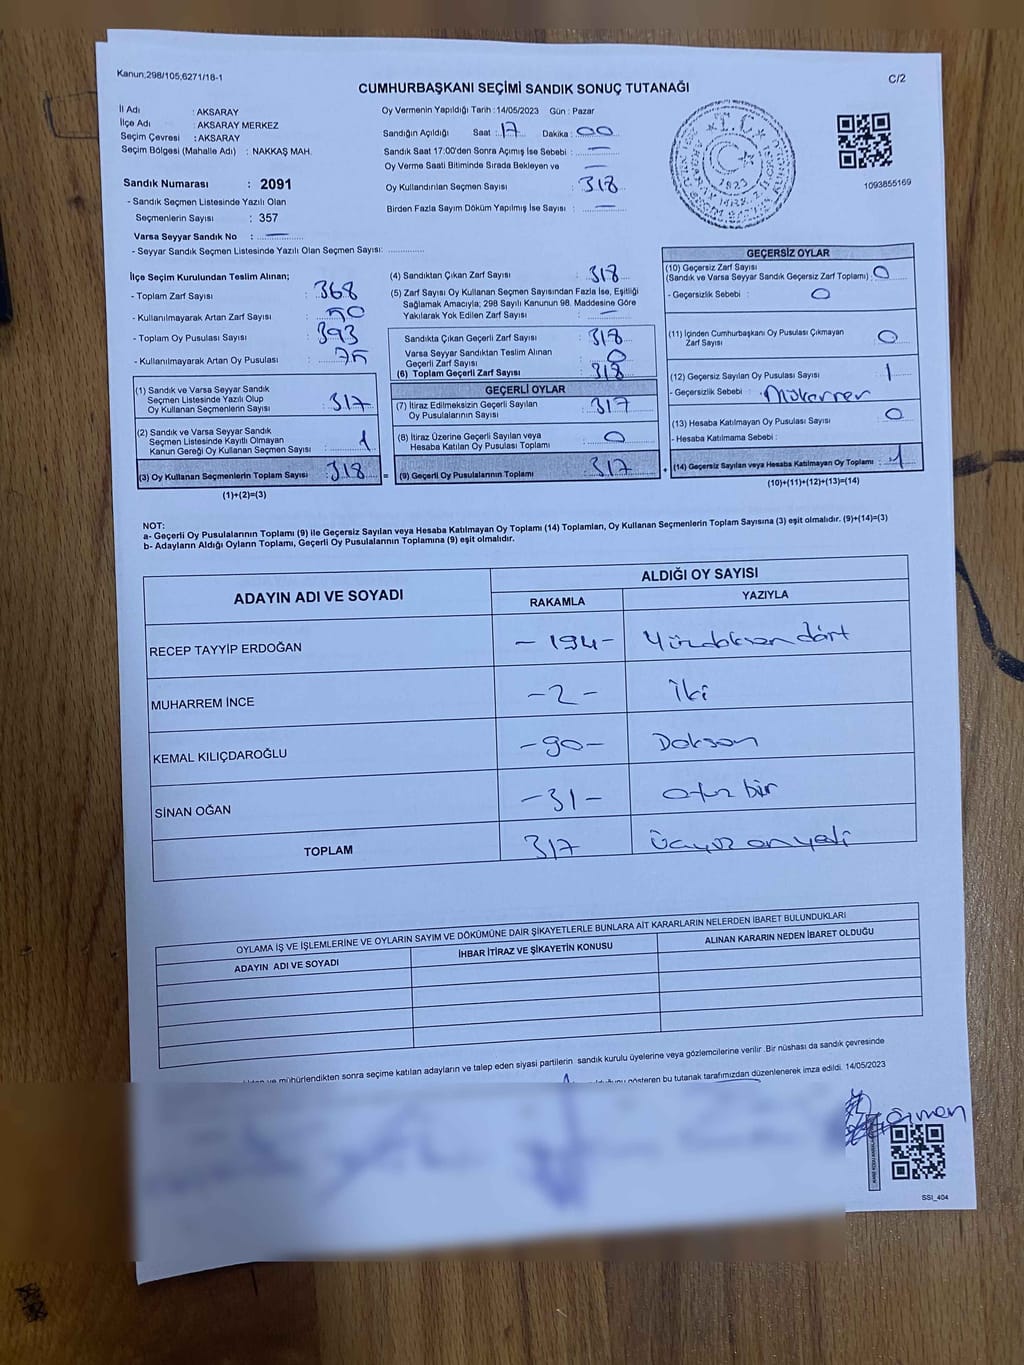 Kanun;298/105,6271/18-1
C/2
CUMHURBAŞKANI SEÇİMİ SANDIK SONUÇ TUTANAĞI
İl Adı : AKSARAY
İlçe Adı : AKSARAY MERKEZ
Seçim Çevresi : AKSARAY
Seçim Bölgesi (Mahalle Adı) : NAKKAŞ MAH.
Sandık Numarası : 2091
- Sandık Seçmen Listesinde Yazılı Olan
Seçmenlerin Sayısı : 357
Varsa Seyyar Sandık No : —
- Seyyar Sandık Seçmen Listesinde Yazılı Olan Seçmen Sayısı:
Oy Vermenin Yapıldığı Tarih : 14/05/2023 Gün : Pazar
Sandığın Açıldığı Saat : 17 Dakika : 00
Sandık Saat 17:00'den Sonra Açımış İse Sebebi : —
Oy Verme Saati Bitiminde Sırada Bekleyen ve —
Oy Kullandırılan Seçmen Sayısı : 318
Birden Fazla Sayım Döküm Yapılmış İse Sayısı : —
T.C.
1923
1093855169
İlçe Seçim Kurulundan Teslim Alınan;
- Toplam Zarf Sayısı : 368
- Kullanılmayarak Artan Zarf Sayısı : 50
- Toplam Oy Pusulası Sayısı : 393
- Kullanılmayarak Artan Oy Pusulası : 75
(1) Sandık ve Varsa Seyyar Sandık
Seçmen Listesinde Yazılı Olup
Oy Kullanan Seçmenlerin Sayısı : 317
(2) Sandık ve Varsa Seyyar Sandık
Seçmen Listesinde Kayıtlı Olmayan
Kanun Gereği Oy Kullanan Seçmen Sayısı : 1
(3) Oy Kullanan Seçmenlerin Toplam Sayısı : 318
(1)+(2)=(3)
(4) Sandıktan Çıkan Zarf Sayısı : 318
(5) Zarf Sayısı Oy Kullanan Seçmen Sayısından Fazla İse, Eşitliği
Sağlamak Amacıyla; 298 Sayılı Kanunun 98. Maddesine Göre
Yakılarak Yok Edilen Zarf Sayısı : —
Sandıkta Çıkan Geçerli Zarf Sayısı : 318
Varsa Seyyar Sandıktan Teslim Alınan
Geçerli Zarf Sayısı : 0
(6) Toplam Geçerli Zarf Sayısı : 318
GEÇERLİ OYLAR
(7) İtiraz Edilmeksizin Geçerli Sayılan
Oy Pusulalarının Sayısı : 317
(8) İtiraz Üzerine Geçerli Sayılan veya
Hesaba Katılan Oy Pusulası Toplamı : 0
= (9) Geçerli Oy Pusulalarının Toplamı : 317
GEÇERSİZ OYLAR
(10) Geçersiz Zarf Sayısı
(Sandık ve Varsa Seyyar Sandık Geçersiz Zarf Toplamı) : 0
- Geçersizlik Sebebi : 0
(11) İçinden Cumhurbaşkanı Oy Pusulası Çıkmayan
Zarf Sayısı : 0
(12) Geçersiz Sayılan Oy Pusulası Sayısı : 1
- Geçersizlik Sebebi : Mükerrer
(13) Hesaba Katılmayan Oy Pusulası Sayısı : 0
- Hesaba Katılmama Sebebi :
+ (14) Geçersiz Sayılan veya Hesaba Katılmayan Oy Toplamı : 1
(10)+(11)+(12)+(13)=(14)
NOT:
a- Geçerli Oy Pusulalarının Toplamı (9) ile Geçersiz Sayılan veya Hesaba Katılmayan Oy Toplamı (14) Toplamları, Oy Kullanan Seçmenlerin Toplam Sayısına (3) eşit olmalıdır. (9)+(14)=(3)
b- Adayların Aldığı Oyların Toplamı, Geçerli Oy Pusulalarının Toplamına (9) eşit olmalıdır.
ADAYIN ADI VE SOYADI
ALDIĞI OY SAYISI
RAKAMLA YAZIYLA
RECEP TAYYİP ERDOĞAN - 194 - Yüzdoksan dört
MUHARREM İNCE - 2 - İki
KEMAL KILIÇDAROĞLU - 90 - Doksan
SİNAN OĞAN - 31 - Otuz bir
TOPLAM 317 Üçyüz onyedi
OYLAMA İŞ VE İŞLEMLERİNE VE OYLARIN SAYIM VE DÖKÜMÜNE DAİR ŞİKAYETLERLE BUNLARA AİT KARARLARIN NELERDEN İBARET BULUNDUKLARI
ADAYIN ADI VE SOYADI İHBAR İTİRAZ VE ŞİKAYETİN KONUSU ALINAN KARARIN NEDEN İBARET OLDUĞU
mühürlendikten sonra seçime katılan adayların ve talep eden siyasi partilerin sandık kurulu üyelerine veya gözlemcilerine verilir .Bir nüshası da sandık çevresinde
gösteren bu tutanak tarafımızdan düzenlenerek imza edildi. 14/05/2023
SSI_404